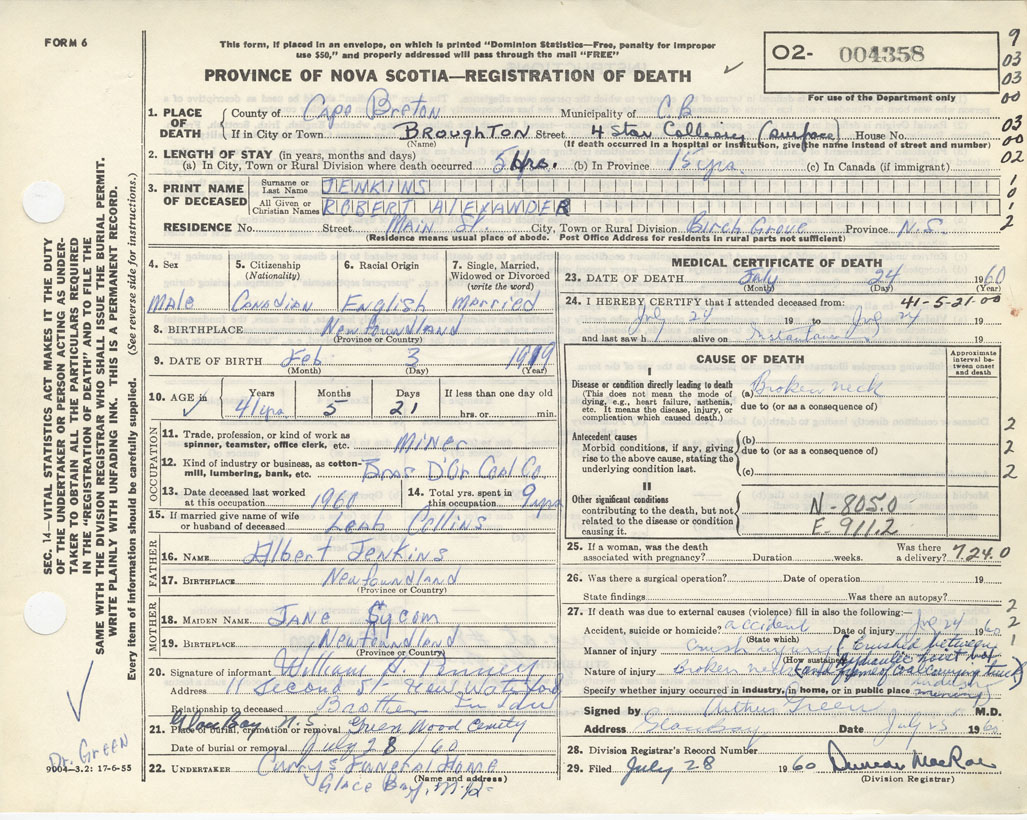 FORM 6
This form, if placed in an envelope, on which is printed "Dominion Statistics—Free, penalty for improper
use $50," and properly addressed will pass through the mail "FREE"
PROVINCE OF NOVA SCOTIA—REGISTRATION OF DEATH
O2- 004358
For use of the Department only
9
03
03
00
03
00
02
1
0
1
2
1. PLACE OF DEATH
County of Cape Breton Municipality of C.B
If in City or Town BROUGHTON Street 4 Star Colliery (Surface) House No.
(Name) (If death occurred in a hospital or institution, give the name instead of street and number)
2. LENGTH OF STAY (in years, months and days)
(a) In City, Town or Rural Division where death occurred 5 Hrs. (b) In Province 15 yrs. (c) In Canada (if immigrant)
3. PRINT NAME OF DECEASED
Surname or Last Name JENKINS
All Given or Christian Names ROBERT ALEXANDER
RESIDENCE No. Street Main St. City, Town or Rural Division Birch Grove Province N.S.
(Residence means usual place of abode. Post Office Address for residents in rural parts not sufficient)
4. Sex
Male
5. Citizenship (Nationality)
Canadian
6. Racial Origin
English
7. Single, Married, Widowed or Divorced (write the word)
Married
8. BIRTHPLACE Newfoundland
(Province or Country)
9. DATE OF BIRTH Feb 3 1919
(Month) (Day) (Year)
10. AGE in
Years Months Days If less than one day old
41 yrs 5 21 hrs. or min.
OCCUPATION
11. Trade, profession, or kind of work as spinner, teamster, office clerk, etc. Miner
12. Kind of industry or business, as cotton-mill, lumbering, bank, etc. Bras D'Or Coal Co
13. Date deceased last worked at this occupation 1960
14. Total yrs. spent in this occupation 9 yrs
15. If married give name of wife or husband of deceased Collins
FATHER
16. NAME Albert Jenkins
17. BIRTHPLACE Newfoundland
(Province or Country)
MOTHER
18. MAIDEN NAME Jane Sycom
19. BIRTHPLACE Newfoundland
(Province or Country)
20. Signature of informant William
Address 11 Second St New Waterford
Relationship to deceased Brother In Law
Glace Bay N.S.
21. Place of burial, cremation or removal Green Wood
Date of burial or removal July 28 /60
22. UNDERTAKER Curry's Funeral Home
(Name and address)
Glace Bay, N.S.
MEDICAL CERTIFICATE OF DEATH
23. DATE OF DEATH July 24 1960
(Month) (Day) (Year)
24. I HEREBY CERTIFY that I attended deceased from: 41-5-21-00
July 24 19 to July 24 19
and last saw h alive on Instantaneous 19
CAUSE OF DEATH
Approximate interval between onset and death
I
Disease or condition directly leading to death
(This does not mean the mode of dying, e.g., heart failure, asthenia, etc. It means the disease, injury, or complication which caused death.)
(a) Broken neck
due to (or as a consequence of)
Antecedent causes
Morbid conditions, if any, giving rise to the above cause, stating the underlying condition last.
(b)
due to (or as a consequence of)
(c)
II
Other significant conditions contributing to the death, but not related to the disease or condition causing it.
N-805.0
E-911.2
2
2
2
25. If a woman, was the death associated with pregnancy? Duration weeks. Was there a delivery? 724.0
26. Was there a surgical operation? Date of operation 19
State findings Was there an autopsy?
27. If death was due to external causes (violence) fill in also the following:—
Accident, suicide or homicide? accident Date of injury July 24 1960
(State which)
Manner of injury crush injury (Crushed between
(How sustained) hydraulic hoist
Nature of injury Broken neck
Specify whether injury occurred in industry, in home, or in public place
Signed by Arthur Green M.D.
Address Glace Bay Date July 25 1960
2
2
1
28. Division Registrar's Record Number
29. Filed July 28 1960 Duncan MacRae
(Division Registrar)
SEC. 14—VITAL STATISTICS ACT MAKES IT THE DUTY
OF THE UNDERTAKER OR PERSON ACTING AS UNDER-
TAKER TO OBTAIN ALL THE PARTICULARS REQUIRED
IN THE "REGISTRATION OF DEATH" AND TO FILE THE
SAME WITH THE DIVISION REGISTRAR WHO SHALL ISSUE THE BURIAL PERMIT.
WRITE PLAINLY WITH UNFADING INK. THIS IS A PERMANENT RECORD.
Every item of information should be carefully supplied. (See reverse side for instructions.)
Dr. Green
9004-3.2: 17-6-55